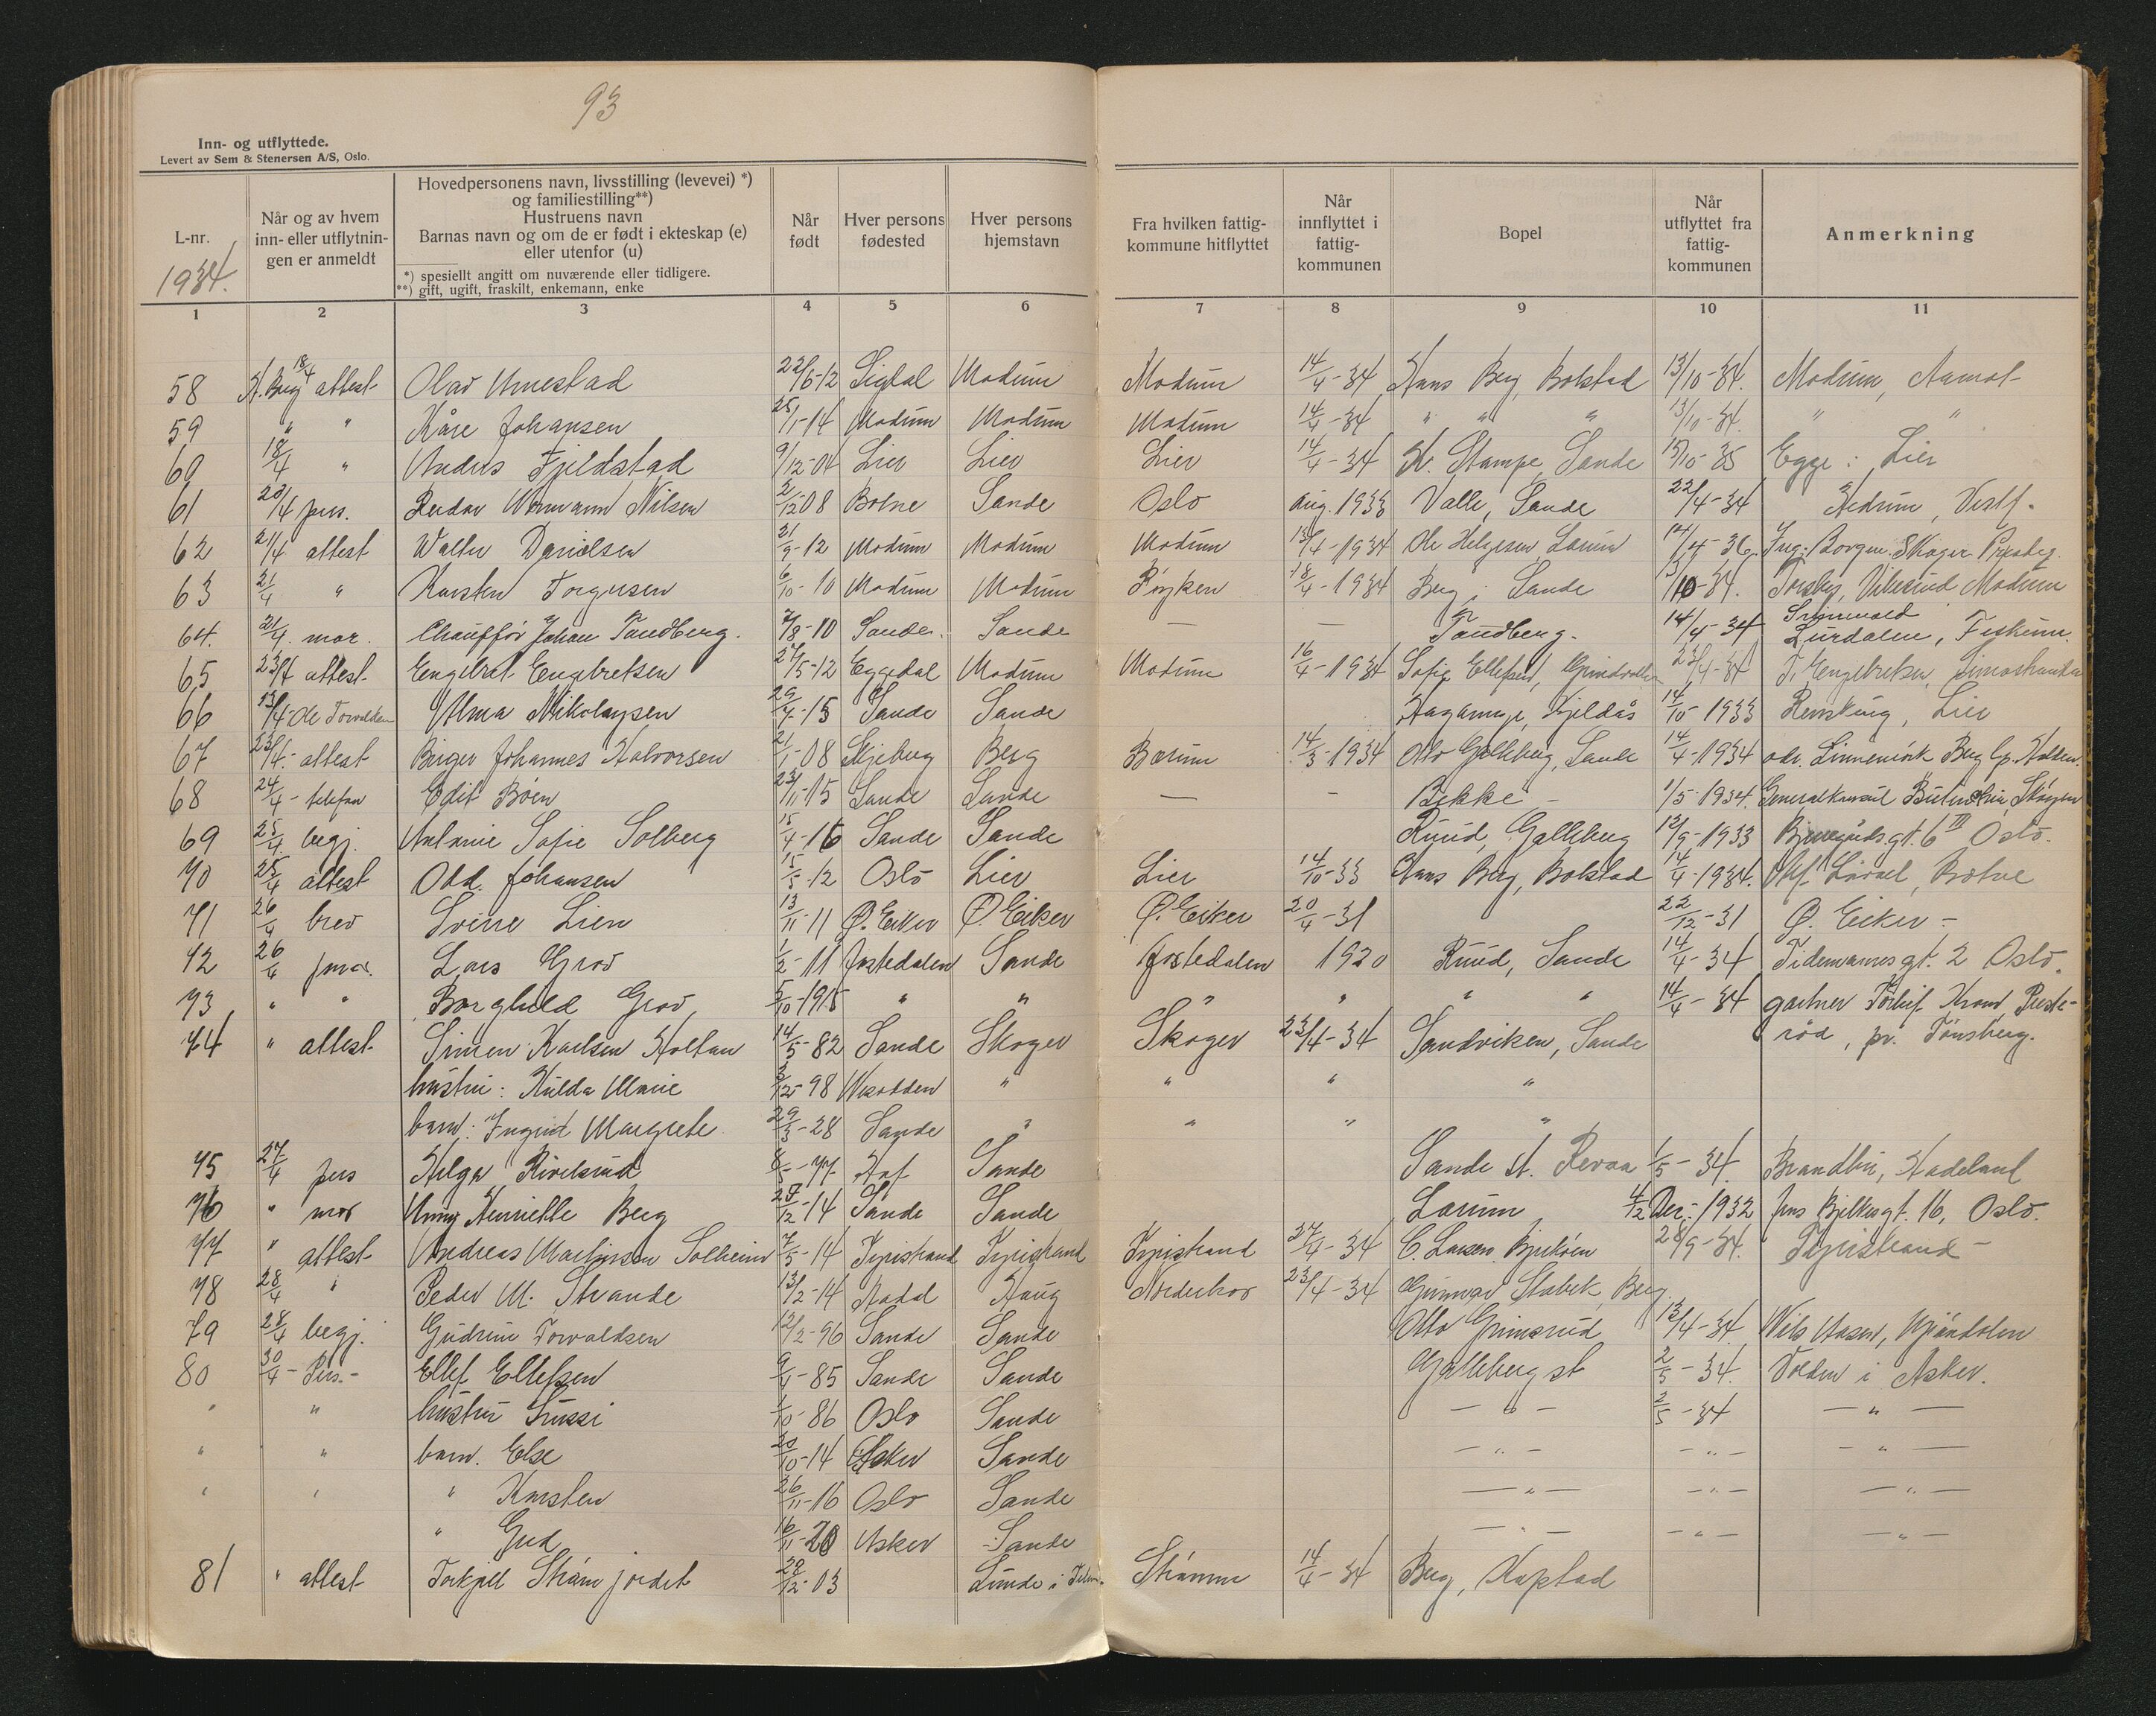 93
Inn- og utflyttede.
Levert av Sem & Stenersen A/S, Oslo.
L-nr.
1934.
Når og av hvem inn- eller utflytnin-gen er anmeldt
Hovedpersonens navn, livsstilling (levevei) *)
og familiestilling**)
Hustruens navn
Barnas navn og om de er født i ekteskap (e)
eller utenfor (u)
*) spesiellt angitt om nuværende eller tidligere.
**) gift, ugift, fraskilt, enkemann, enke
Når født
Hver persons fødested
Hver persons hjemstavn
Fra hvilken fattig-kommune hitflyttet
Når innflyttet i fattig-kommunen
Bopel
Når utflyttet fra fattig-kommunen
Anmerkning
1 2 3 4 5 6 7 8 9 10 11
58 H. Berg 18/4 attest Olav Urnestad 22/6-12 Sigdal Modum Modum 14/4-34 Hans Berg, Bolstad 13/10-34. Modum, Aamot
59 " " Kåre Johansen 25/1-14 Modum Modum Modum 14/4-34 " " " 13/10-34. " "
60 18/4 " Anders Fjeldstad 9/12-04 Lier Lier Lier 14/4-34 St. Stampe, Sande 15/10-35 Egge i Lier
61 20/4 pers. Reidar Wermann Nilsen 2/12-08 Botne Sande Oslo aug. 1933 Valle, Sande 22/4-34 Hedrum, Vestf.
62 21/4 attest Walter Danielsen 21/9-12 Modum Modum Modum 13/4-1934 Ole Helgesen Lorum 14/4-36. Ing. Borgen. Skoger Presteg.
63 21/4 " Karsten Torgersen 6/10-10 Modum Modum Røyken 18/4-1934 Berg i Sande 13/10-34. Vikesund Modum
64. 21/4. mor. Chauffør Johan Tandberg. 7/8-10 Sande. Sande — — Tandberg. 14/4-34 Lurdalen,
65 23/4 attest Engebret Engebretsen 27/5-12 Eggedal Modum Modum 16/4-1934 Sofie Ellefsen, 23/4-34 T. Engebretsen,
66 13/4- Ole Torvaldsen Alma Nikolaysen 29/7-15 Sande Sande Haganje, Kjeldås 14/10-1933 Lier
67 23/4.- attest Birger Johannes Halvorsen 21/1-08 Skjeberg Berg Bærum 14/3-1934 Otto Galleberg, Sande 14/4-1934 adr. Berg Halden.
68 24/4- telefon Edit Böen 23/11-15 Sande Sande — - Bekke - 1/5-1934. Generalkonsul
69 25/4 begj. Antonie Sofie Solberg 15/4-16 Sande Sande Ruud, Galleberg 12/9-1933 Bjerregårdsgt. 6 III Oslo.
70 25/4 attest Odd. Johansen 15/5-12 Oslo Lier Lier 14/10-33 Hans Berg, Bolstad 14/4-1934. Botne
71 26/4 brev Sverre Lien 13/11-11 Ø. Eiker Ø. Eiker Ø. Eiker 20/4-31 22/12-31 Ø. Eiker -
72 26/4 mor. Lars Grov 1/2-11 Jostedalen Sande Jostedalen 1920 Ruud, Sande 14/4-34 Tidemannsgt. 2 Oslo.
73 " " Borghild Grov 5/10-1915 " " " " " " 14/4-34 gartner Preste-
74 " attest Simen Karlsen Holtan 14/5-82 Sande Skoger Skoger 23/4-34 Sandviken, Sande rød, pr. Tønsberg.
hustru: Hulda Marie 3/12-98 " " " "
barn: Ingrid Margrete 29/3-28 Sande " " " "
75 27/4 pers Helga Rivelsrud Hof Sande Sande st. Revaa 1/5-34. Brandbu, Hadeland
76 " mor Anny Henriette Berg 27/12-14 Sande Sande Lorum 4/12 Des. 1932 Jens Bjelkesgt. 16, Oslo.
77 " attest Andreas Martinsen Solheim 7/5-14 Tyristrand Tyristrand Tyristrand 27/4-34 C. Larsen, 28/9-34. Tyristrand -
78 28/4 " Peder M. Strande 13/2-14 Aadal Haug Norderhov 23/4-34 Gunnar Stabek, Berg.
79 28/4 begj. Gudrun Torvaldsen 12/2-96 Sande Sande Otto Grimsrud 13/4-34 Nils Aasen, Mjöndalen
80 30/4- Pers.- Ellef Ellefsen 9/4-85 Sande Sande Galleberg st 2/5-34. Volden i Asker.
" " hustru Sussi 1/10-86 Oslo Sande — " — 2/5-34 — " —
" " barn. Else 20/10-14 Asker Sande — " — — " — — " —
" " " Karsten 26/11-16 Oslo Sande — " — — " — — " —
" Gud 16/11-20 Asker Sande — " — — " — — " —
81 " attest Torkjell Strömjordet 20/12-03 Lunde i Telem. Strømm 14/4-34 Berg,